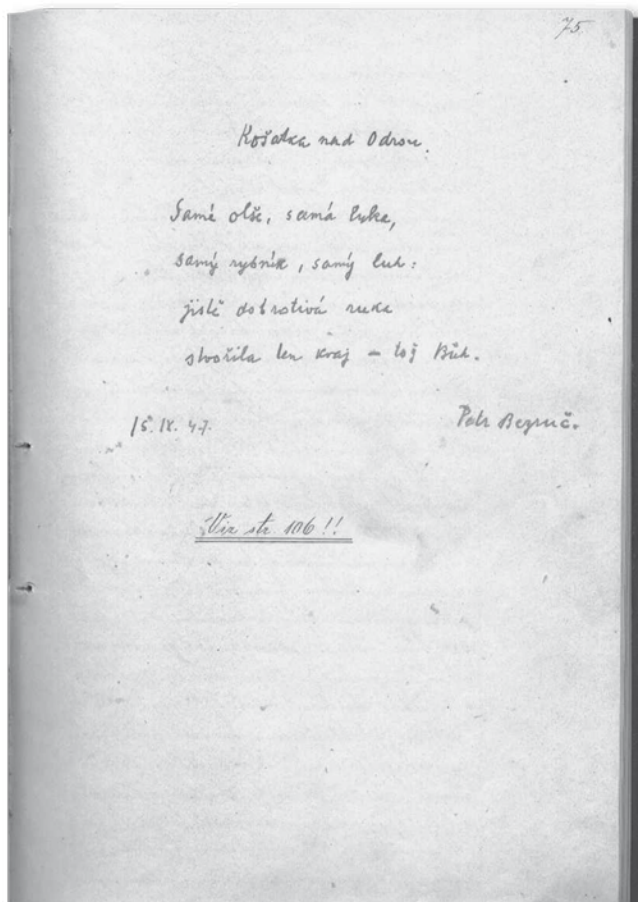 75
Košatka nad Odrou.
Samé olše, samá luka,
samý rybník, samý luh:
jistě dobrotivá ruka
stvořila ten kraj – tož Bůh.
15. IX. 47. Petr Bezruč.
Viz str. 106!!